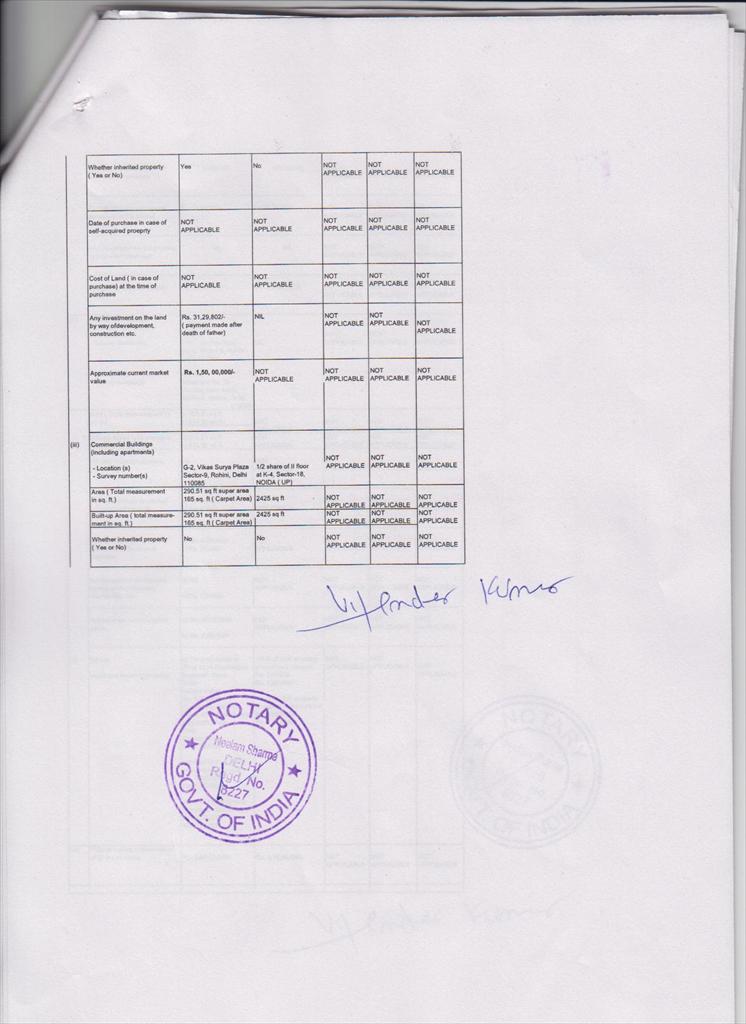 Whether inherited property Yes No NOT NOT NOT
( Yes or No) APPLICABLE APPLICABLE APPLICABLE
Date of purchase in case of NOT NOT NOT NOT NOT
self-acquired proeprty APPLICABLE APPLICABLE APPLICABLE APPLICABLE APPLICABLE
Cost of Land ( in case of NOT NOT NOT NOT NOT
purchase) at the time of APPLICABLE APPLICABLE APPLICABLE APPLICABLE APPLICABLE
purchase
Any investment on the land Rs. 31,29,802/- NIL NOT NOT NOT
by way ofdevelopment, ( payment made after APPLICABLE APPLICABLE APPLICABLE
construction etc. death of father)
Approximate current market Rs. 1,50, 00,000/- NOT NOT NOT NOT
value APPLICABLE APPLICABLE APPLICABLE APPLICABLE
(iii) Commercial Buildings
(including apartments) NOT NOT NOT
- Location (s) G-2, Vikas Surya Plaza 1/2 share of II floor APPLICABLE APPLICABLE APPLICABLE
- Survey number(s) Sector-9, Rohini, Delhi at K-4, Sector-18,
110085 NOIDA ( UP)
Area ( Total measurement 290.51 sq ft super area 2425 sq ft NOT NOT NOT
in sq. ft.) 165 sq. ft ( Carpet Area) APPLICABLE APPLICABLE APPLICABLE
Built-up Area ( total measure- 290.51 sq ft super area 2425 sq ft NOT NOT NOT
ment in sq. ft.) 165 sq. ft ( Carpet Area) APPLICABLE APPLICABLE APPLICABLE
Whether inherited property No No NOT NOT NOT
( Yes or No) APPLICABLE APPLICABLE APPLICABLE
Vijender Kumar
NOTARY
Neelam Sharma
DELHI
Regd. No.
8227
GOVT. OF INDIA